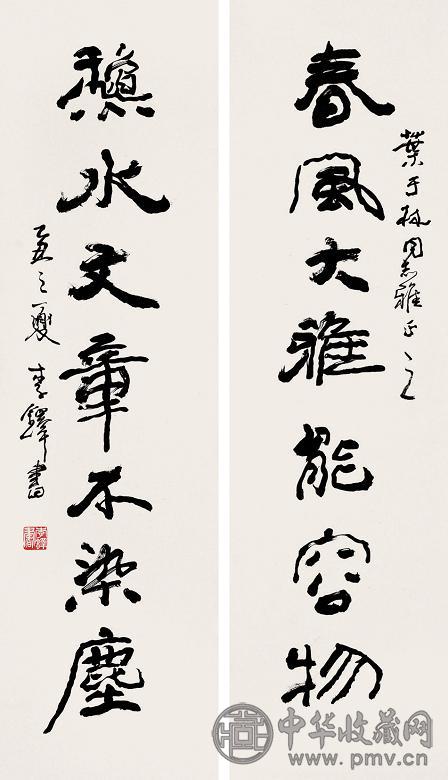 春風大雅能容物
葉于林同志雅正之
龝水文章不染塵
乙丑之夏 李鐸書
中华收藏网
www.pmv.cn